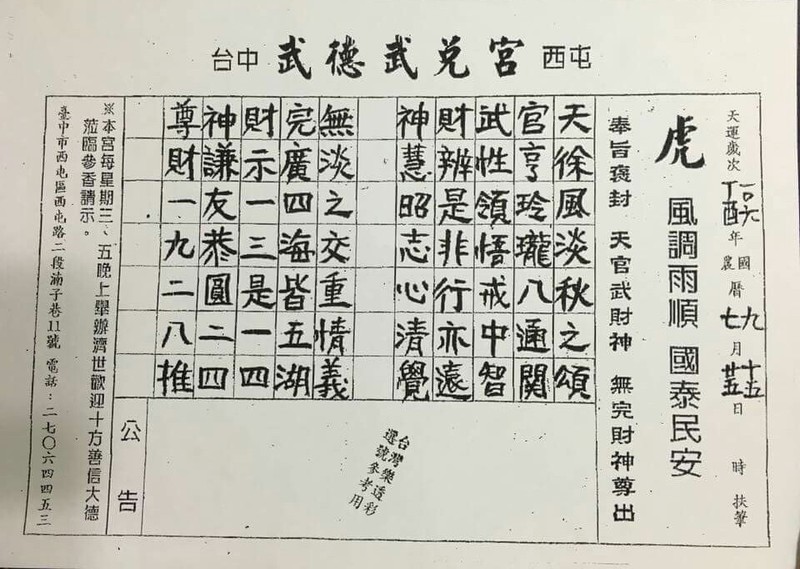 台中 武德武兌宮 西屯
天運歲次 丁酉 年 國農曆 九七月 十五廿五日 時 扶筆
虎 風調雨順 國泰民安
奉旨褒封 天官武財神 無完財神尊出
天徐風淡秋之頌
官亨玲瓏八通關
武性領悟戒中智
財辨是非行亦遠
神慧昭志心清覺
無淡之交重情義
完廣四海皆五湖
財示一三是一四
神謙友恭圓二四
尊財一九二八推
台灣樂透彩
選號參考用
公告
※本宮每星期三、五晚上舉辦濟世歡迎十方善信大德
蒞臨參香請示。
臺中市西屯區西屯路二段湳子巷11號 電話：二七〇六四四五三